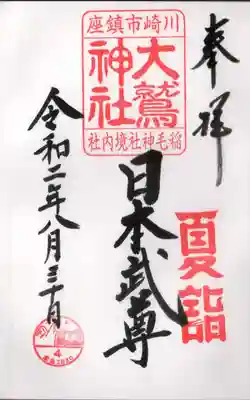 奉拝
夏詣
川崎市鎮座
大鷲
神社
稲毛神社境内社
日本武尊
令和二年八月三十日
4